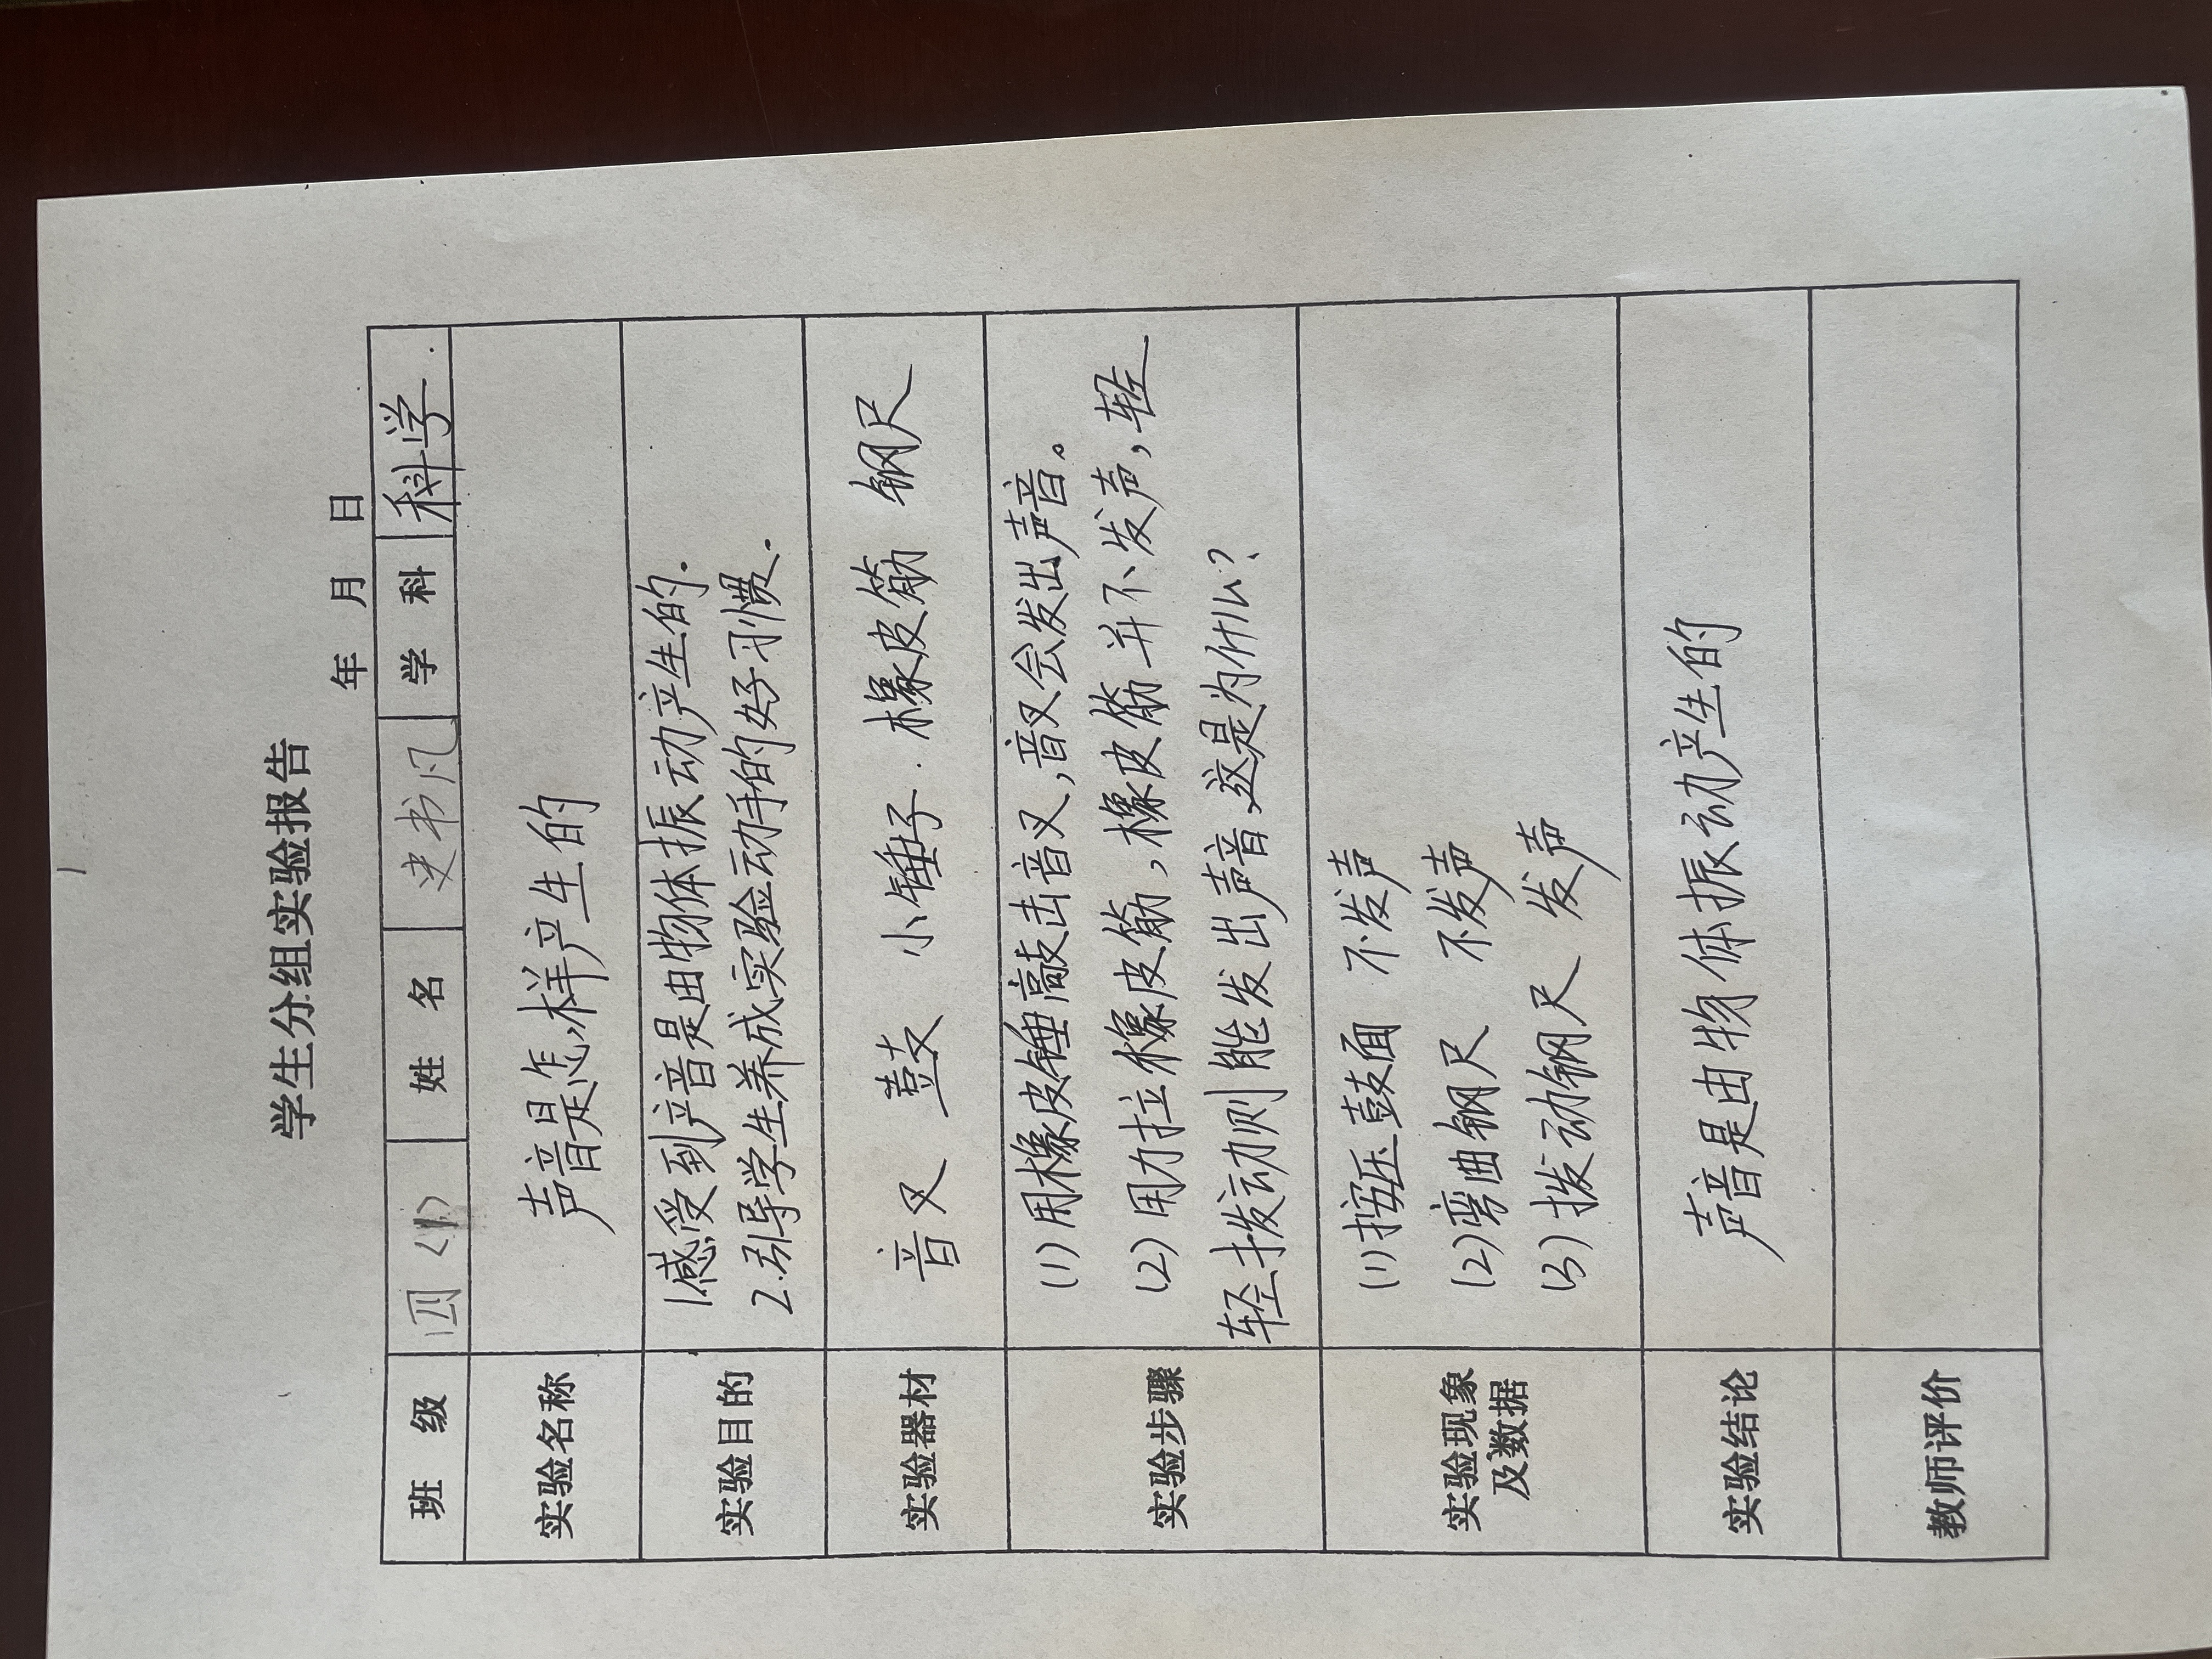 学生分组实验报告
年 月 日
班 级 四（1） 姓 名 史书凡 学 科 科学.
实验名称 声音是怎样产生的
实验目的 1.感受到声音是由物体振动产生的.
2.引导学生养成实验动手的好习惯.
实验器材 音叉 鼓 小锤子. 橡皮筋 钢尺
实验步骤 (1)用橡皮锤敲击音叉,音叉会发出声音。
(2)用力拉橡皮筋,橡皮筋并不发声,轻
轻拨动则能发出声音,这是为什么?
实验现象
及数据
(1)按压鼓面 不发声
(2)弯曲钢尺 不发声
(3)拨动钢尺 发声
实验结论 声音是由物体振动产生的
教师评价